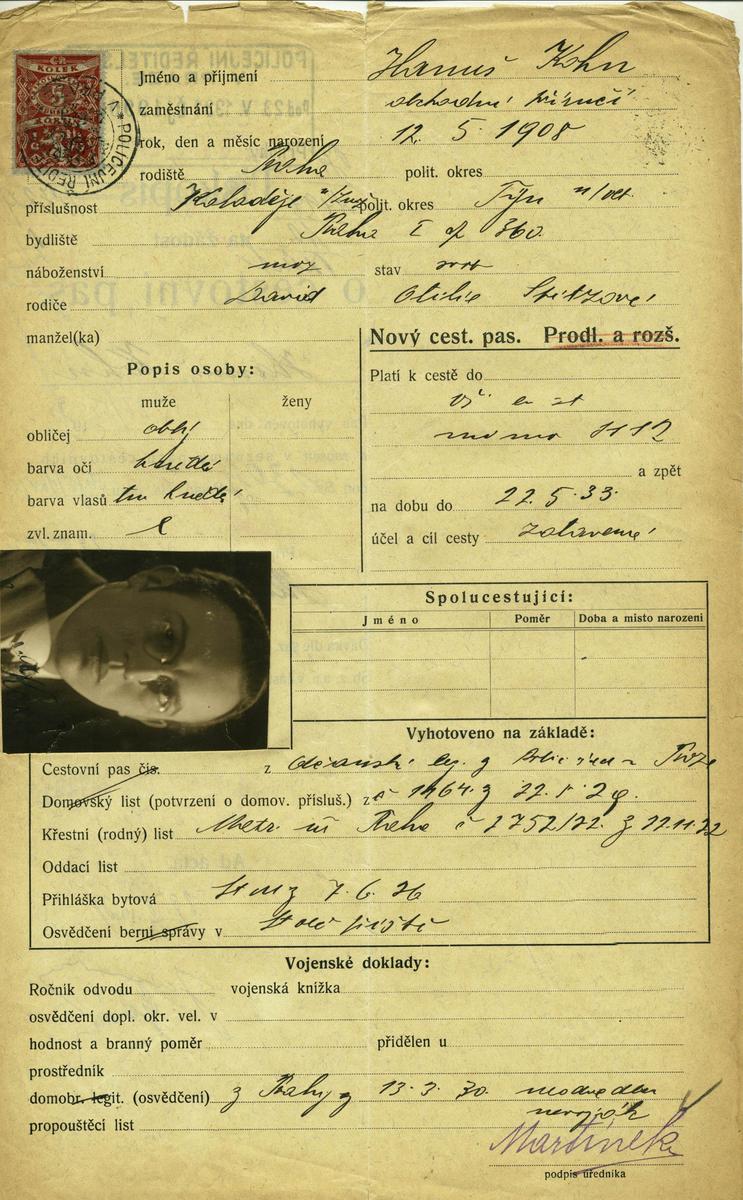 ČR
KOLEK
5
POLICEJNÍ ŘEDITEL
Jméno a příjmení Hanuš Kohn
zaměstnání obchodní příručí
rok, den a měsíc narození 12. 5. 1908
rodiště Praha polit. okres
příslušnost Koloděje n/Luž polit. okres Týn n/vlt.
bydliště Praha I čp 360.
náboženství moj stav svob
rodiče David Otilie
manžel(ka)
Nový cest. pas. Prodl. a rozš.
Popis osoby:
Platí k cestě do
muže ženy
obličej obl.
mimo
barva očí hnědé
a zpět
barva vlasů tm hnědé
na dobu do 22. 5. 33.
zvl. znam.
účel a cíl cesty zotavení
Spolucestující:
Jméno Poměr Doba a misto narozeni
Vyhotoveno na základě:
Cestovní pas čis. z Občanské leg. z
Domovský list (potvrzení o domov. přísluš.) z č 1964 z 22. 29.
Křestní (rodný) list Matr. úř Praha č 2752/22. z 22.11.22
Oddací list
Přihláška bytová z 7. 6. 26
Osvědčení berní správy v
Vojenské doklady:
Ročník odvodu vojenská knížka
osvědčení dopl. okr. vel. v
hodnost a branný poměr přidělen u
prostředník
domobr. legit. (osvědčení) z Prahy z 13. 3. 30. neodveden
nevoják
propouštěcí list
Martínek
podpis úředníka